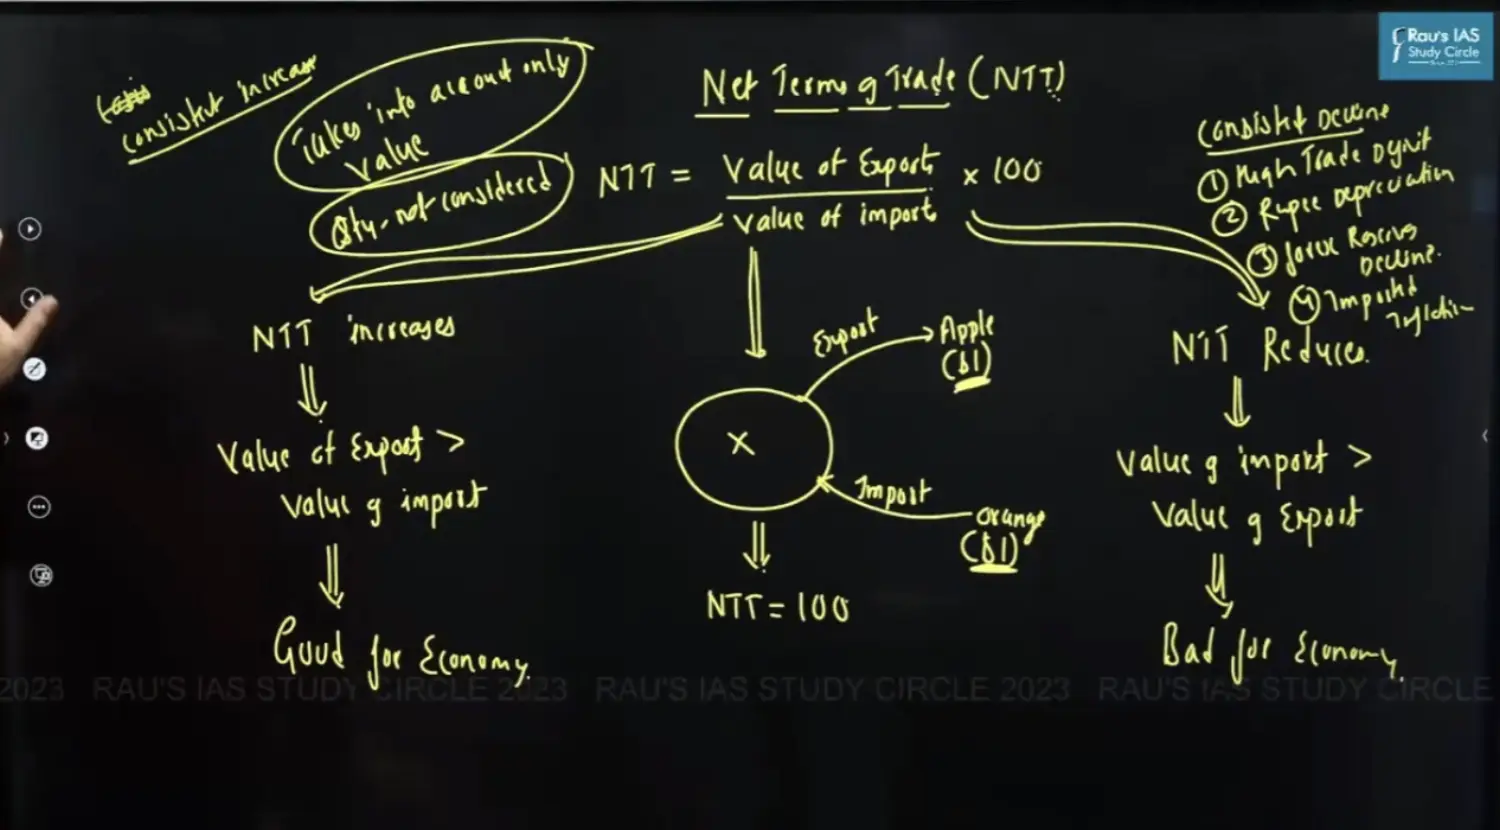 Rau's IAS
Study Circle
Net Terms of Trade (NTT)
consistent increase
Takes into account only
value
Qty. not considered
NTT = Value of Exports / Value of imports × 100
Consistent Decline
① High Trade Dyficit
② Rupee Depreciation
③ forex Reserves
Decline.
④ Imported
Inflation
NTT increases
Value of Export >
Value of import
Good for Economy.
Export
Apple
($1)
X
Import
Orange
($1)
NTT = 100
NTT Reduces.
Value of import >
Value of Export
Bad for Economy.
2023 RAU'S IAS STUDY CIRCLE 2023 RAU'S IAS STUDY CIRCLE 2023 RAU'S IAS STUDY CIRCLE